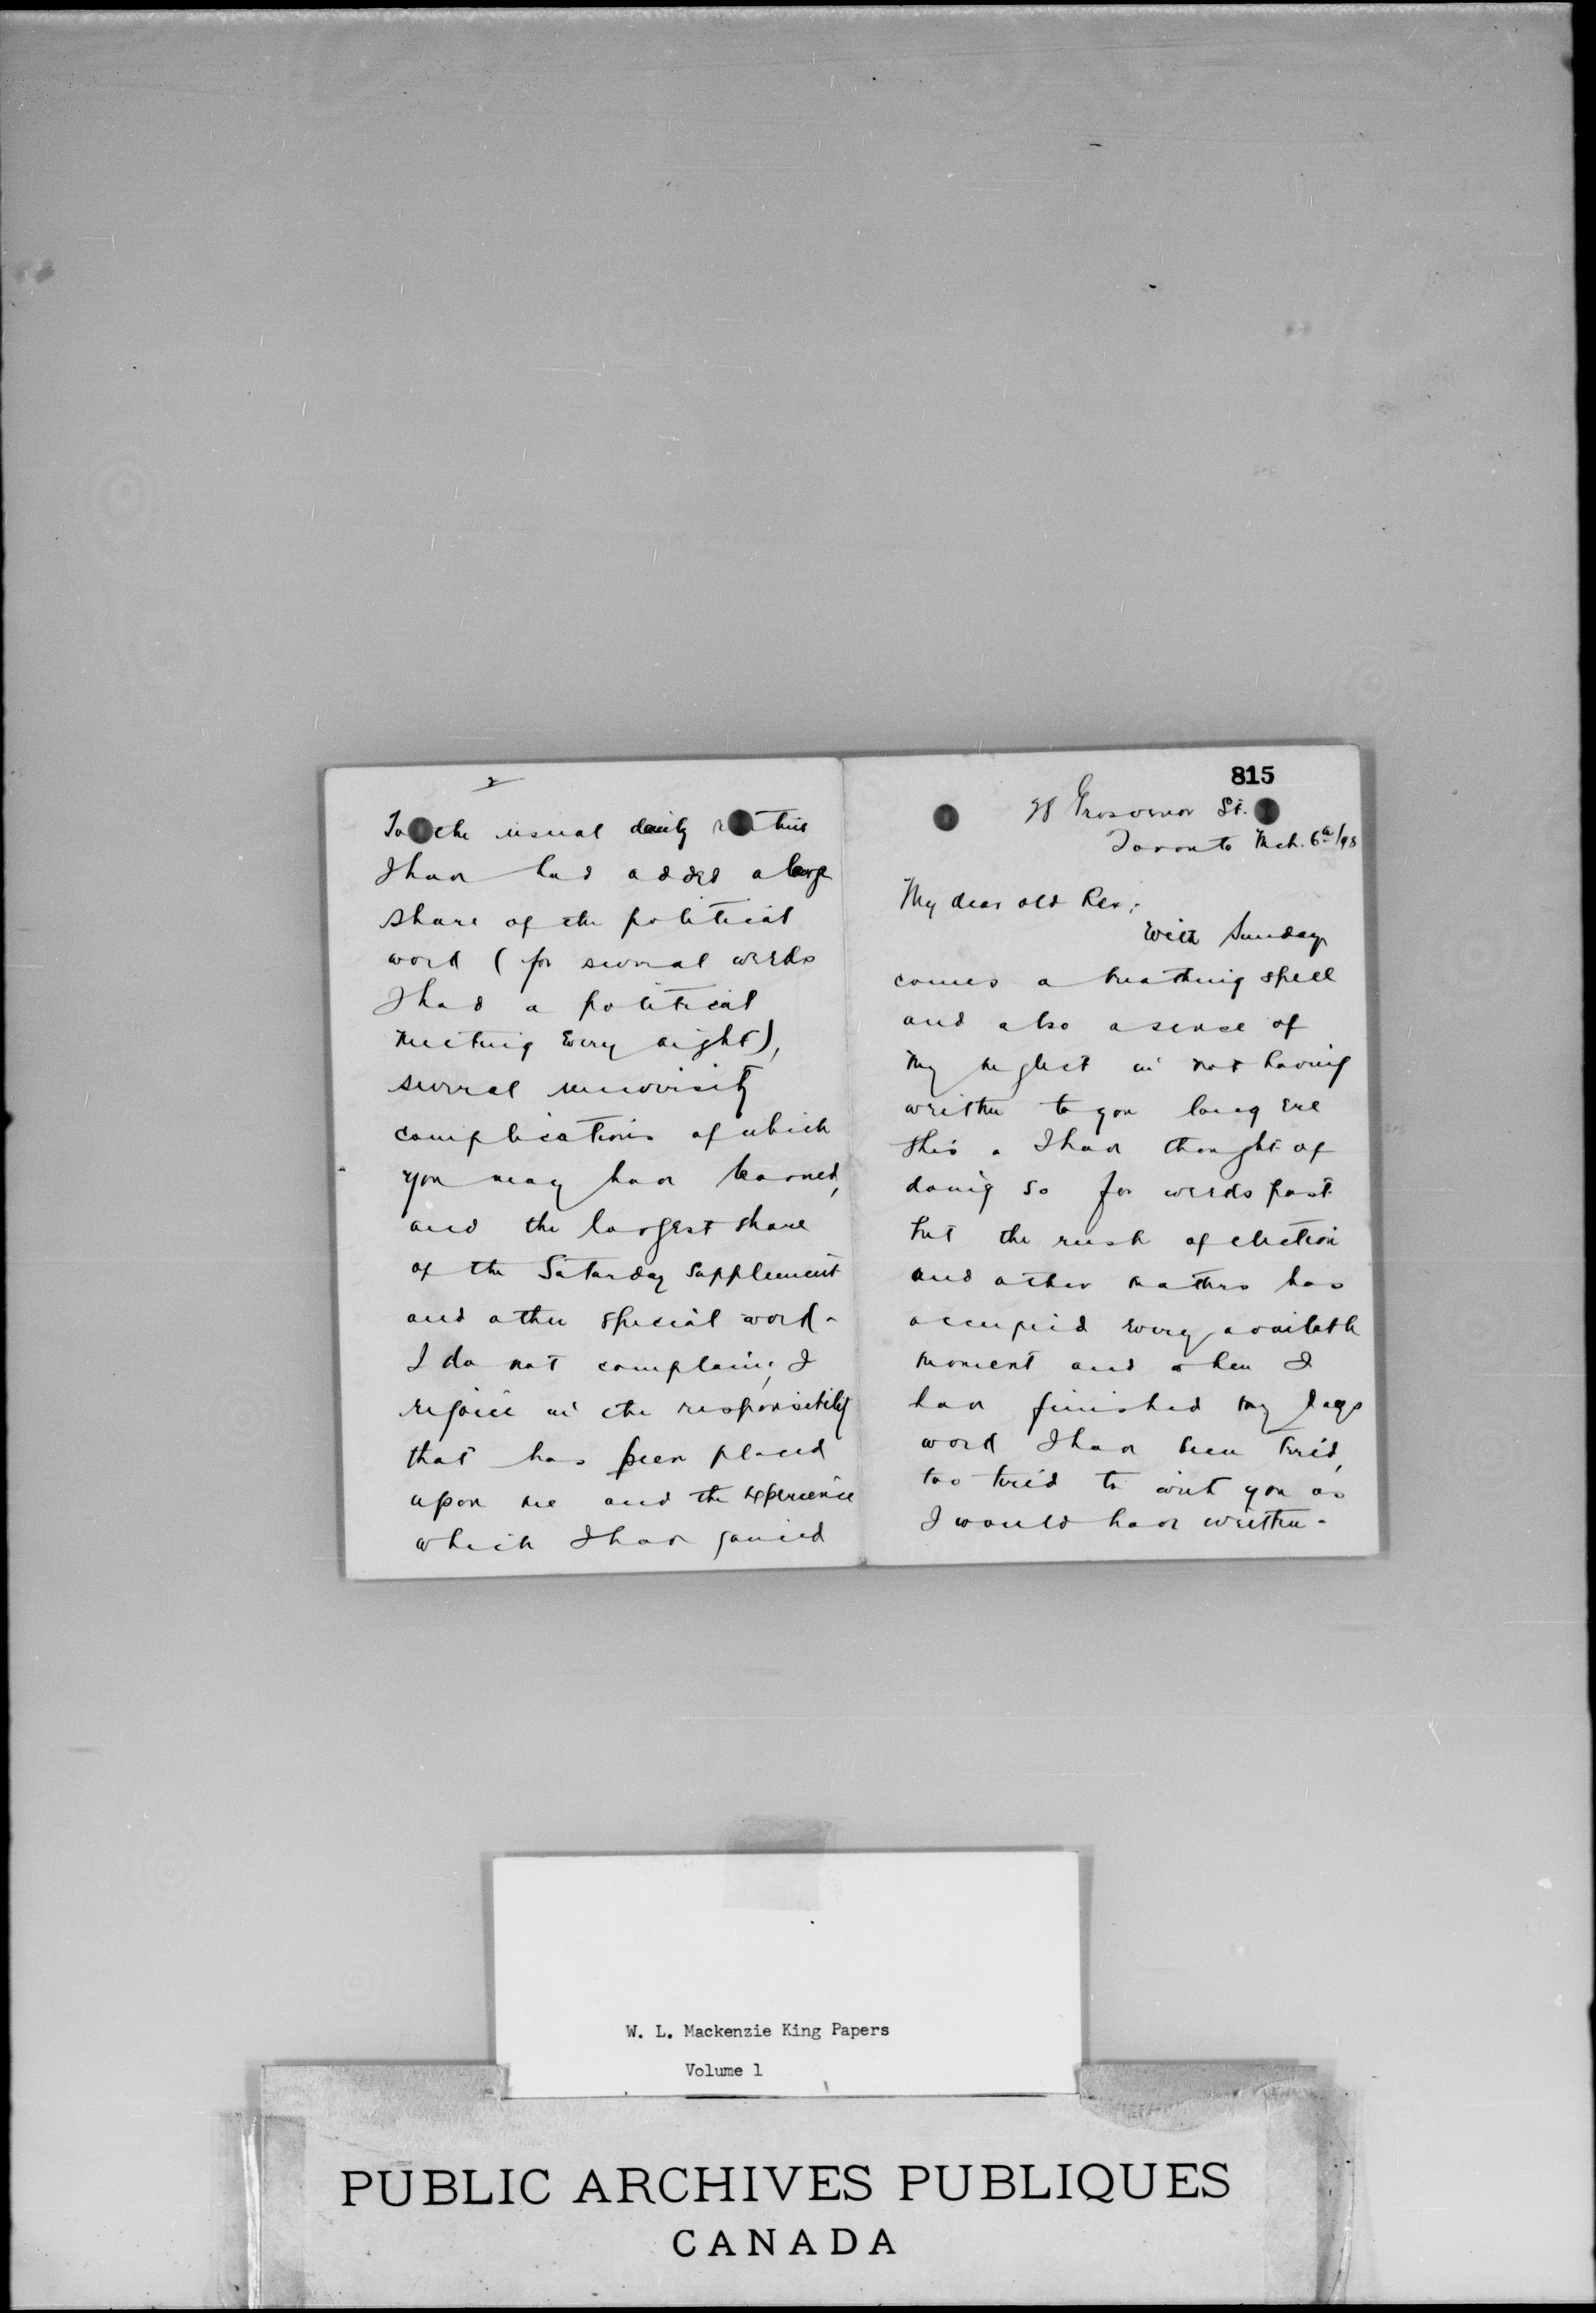 815
28 Grosvenor St.
Toronto Mch. 6th/98
My dear old Rex:
With Sunday
comes a breathing spell
and also a sense of
my neglect in not having
written to you long ere
this. I have thought of
doing so for weeks past
but the rush of election
and other matters has
occupied every available
moment and when I
have finished my days
work I have been tired,
too tired to write you as
I would have written.
2
To the usual daily routine
I have had added a large
share of the political
work (for several weeks
I had a political
meeting every night),
several university
complications of which
you may have learned,
and the largest share
of the Saturday Supplement
and other special work.
I do not complain; I
rejoice in the responsibility
that has been placed
upon me and the experience
which I have gained
W. L. Mackenzie King Papers
Volume 1
PUBLIC ARCHIVES PUBLIQUES
CANADA